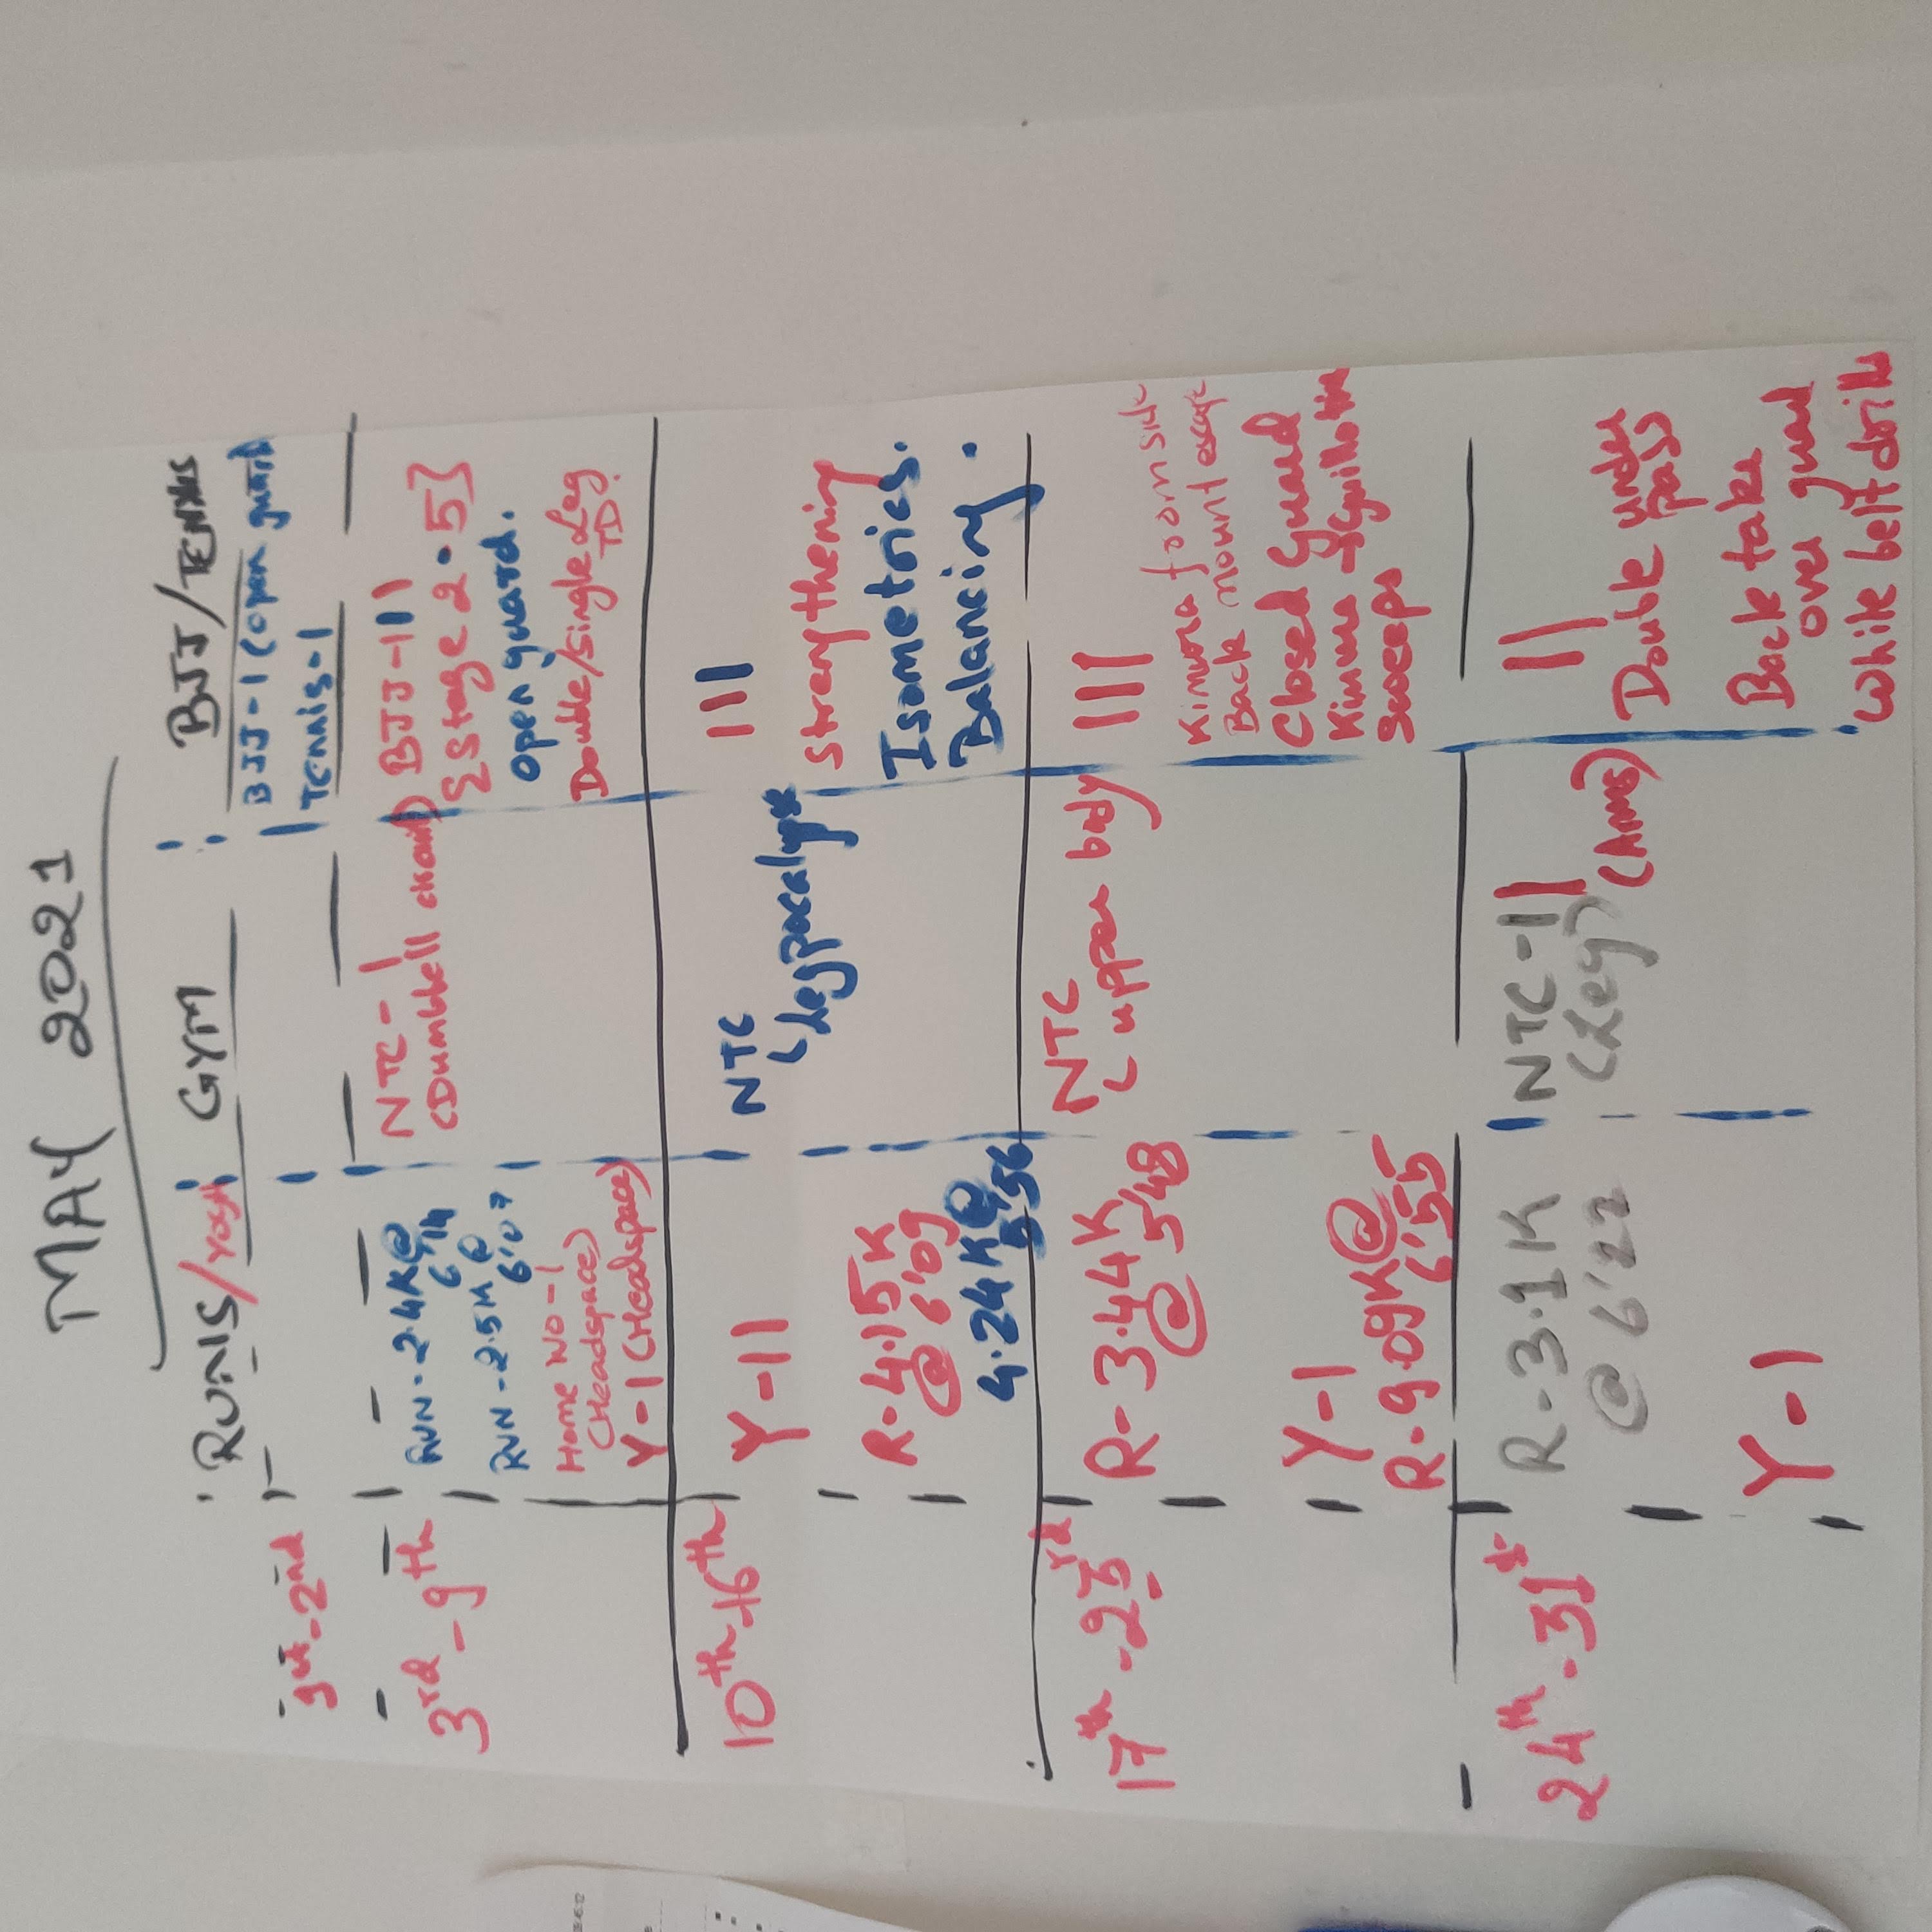 MAY 2021
RUNS/YOGA GYM BJJ/TENNIS
1st-2nd
BJJ-1 (open guard
Tennis-1
3rd-9th
RUN-2.4K@
6'14
RUN-2.5K@
6'07
Home WO-1
(Headspace)
Y-1 (Headspace)
NTC-1
(Dumbbell circuit)
BJJ-111
{Stage 2.5}
open guard.
Double/Single Leg
TD.
10th-16th
Y-11
R-4.15K
@ 6'09
4.24K@
5'56
NTC
Legpocalypse
|||
Strengthening
Isometrics.
Balancing.
17th-23rd
R-3.44K
@ 5'48
Y-1
R-9.09K@
6'55
NTC
(upper body
|||
Kimura from side
Back mount escape
Closed Guard
Kimura → Guillotine
Sweeps
24th-31st
R-3.1K
@ 6'22
Y-1
NTC-11
(Leg)
(Arms)
||
Double under
pass
Back take
over guard
White belt drills